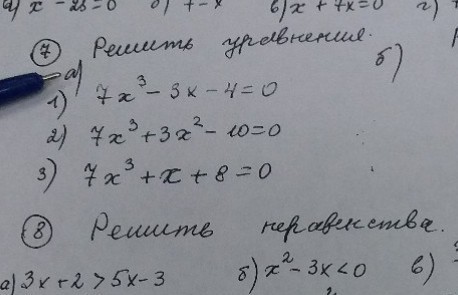 x² - 25 = 0 б) 7 - x в) x + 7x = 0 г)
⑦ Решить уравнения.
а) б)
1) 7x³ - 3x - 4 = 0
2) 7x³ + 3x² - 10 = 0
3) 7x³ + x + 8 = 0
⑧ Решить неравенства.
а) 3x + 2 > 5x - 3 б) x² - 3x < 0 в)